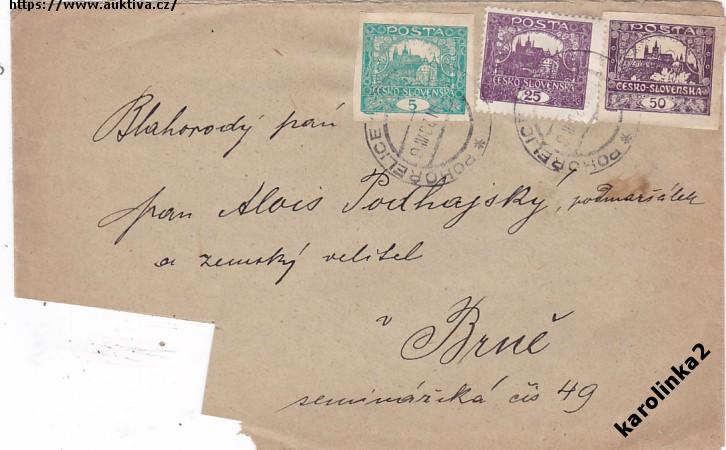 https://www.auktiva.cz/
POSTA
ČESKO-SLOVENSKÁ
5
POSTA
ČESKO-SLOVENSKÁ
25
POSTA
ČESKO-SLOVENSKÁ
50
* POHOŘELICE
* POHOŘELICE
Blahorodý pán
pan Alois Podhajský, podmaršálek
a zemský velitel
v Brně
seminářská čís 49
karolinka2